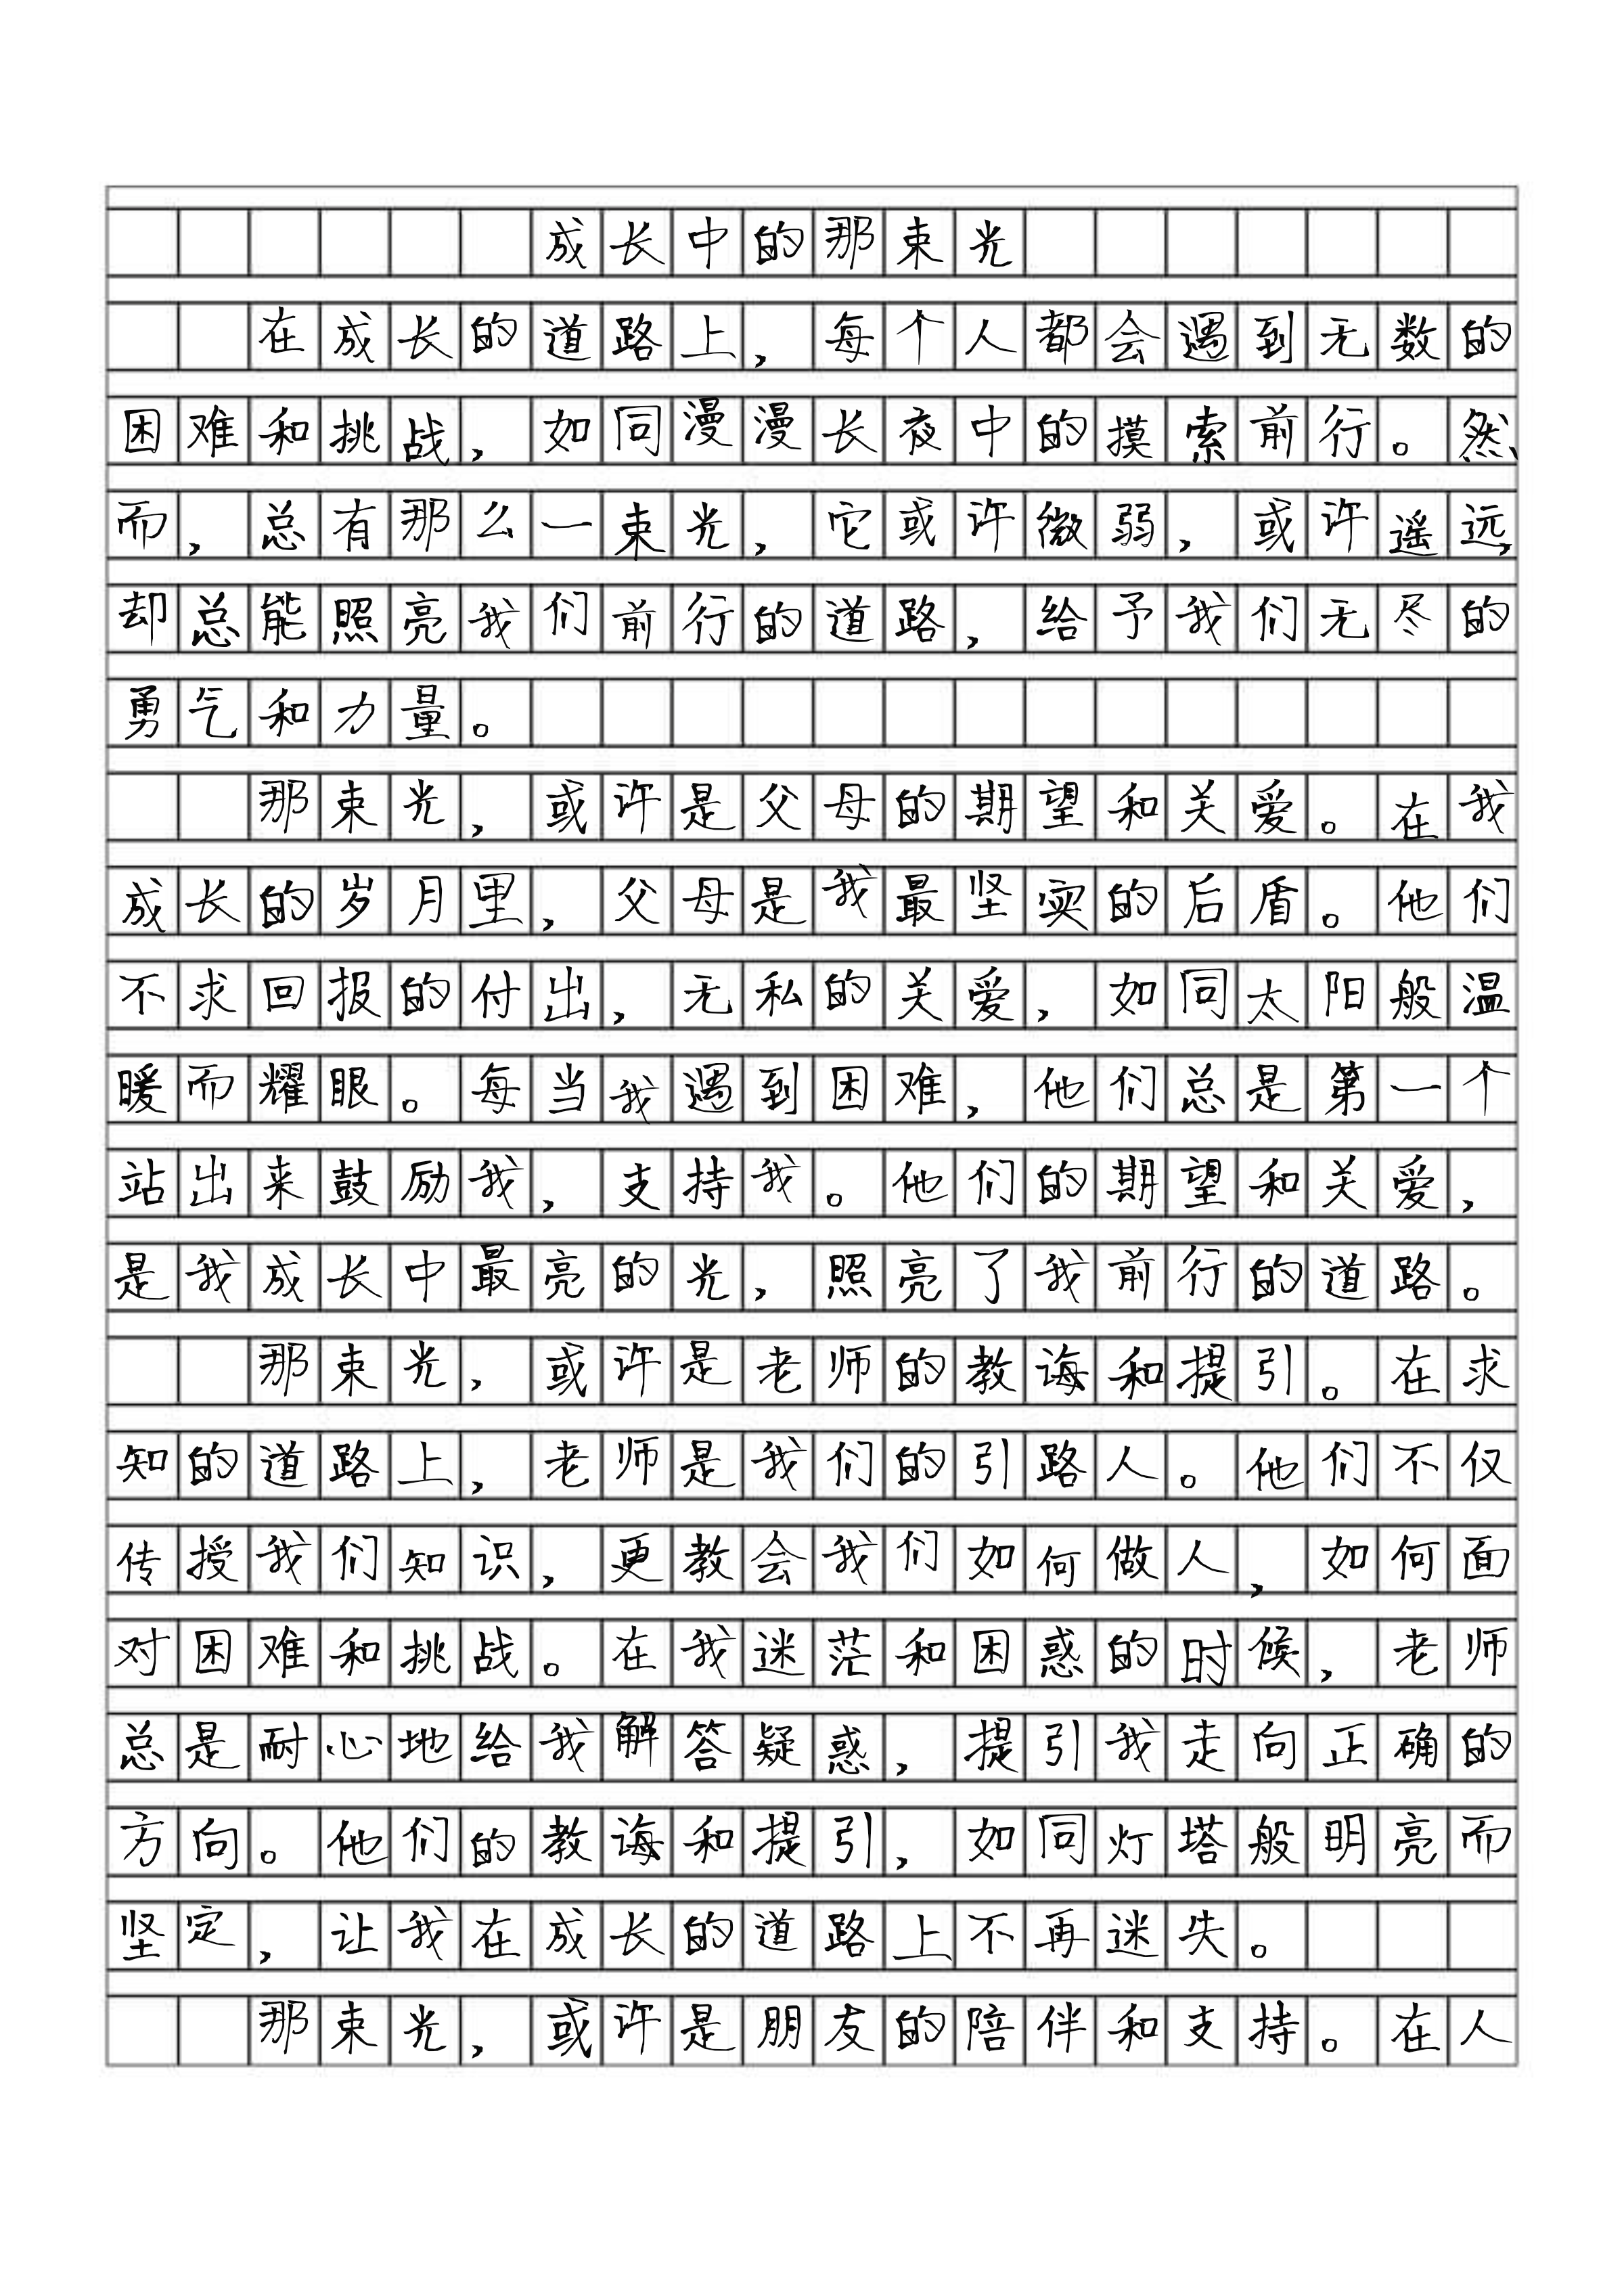 成长中的那束光
在成长的道路上，每个人都会遇到无数的
困难和挑战，如同漫漫长夜中的摸索前行。然
而，总有那么一束光，它或许微弱，或许遥远，
却总能照亮我们前行的道路，给予我们无尽的
勇气和力量。
那束光，或许是父母的期望和关爱。在我
成长的岁月里，父母是我最坚实的后盾。他们
不求回报的付出，无私的关爱，如同太阳般温
暖而耀眼。每当我遇到困难，他们总是第一个
站出来鼓励我，支持我。他们的期望和关爱，
是我成长中最亮的光，照亮了我前行的道路。
那束光，或许是老师的教诲和提引。在求
知的道路上，老师是我们的引路人。他们不仅
传授我们知识，更教会我们如何做人，如何面
对困难和挑战。在我迷茫和困惑的时候，老师
总是耐心地给我解答疑惑，提引我走向正确的
方向。他们的教诲和提引，如同灯塔般明亮而
坚定，让我在成长的道路上不再迷失。
那束光，或许是朋友的陪伴和支持。在人